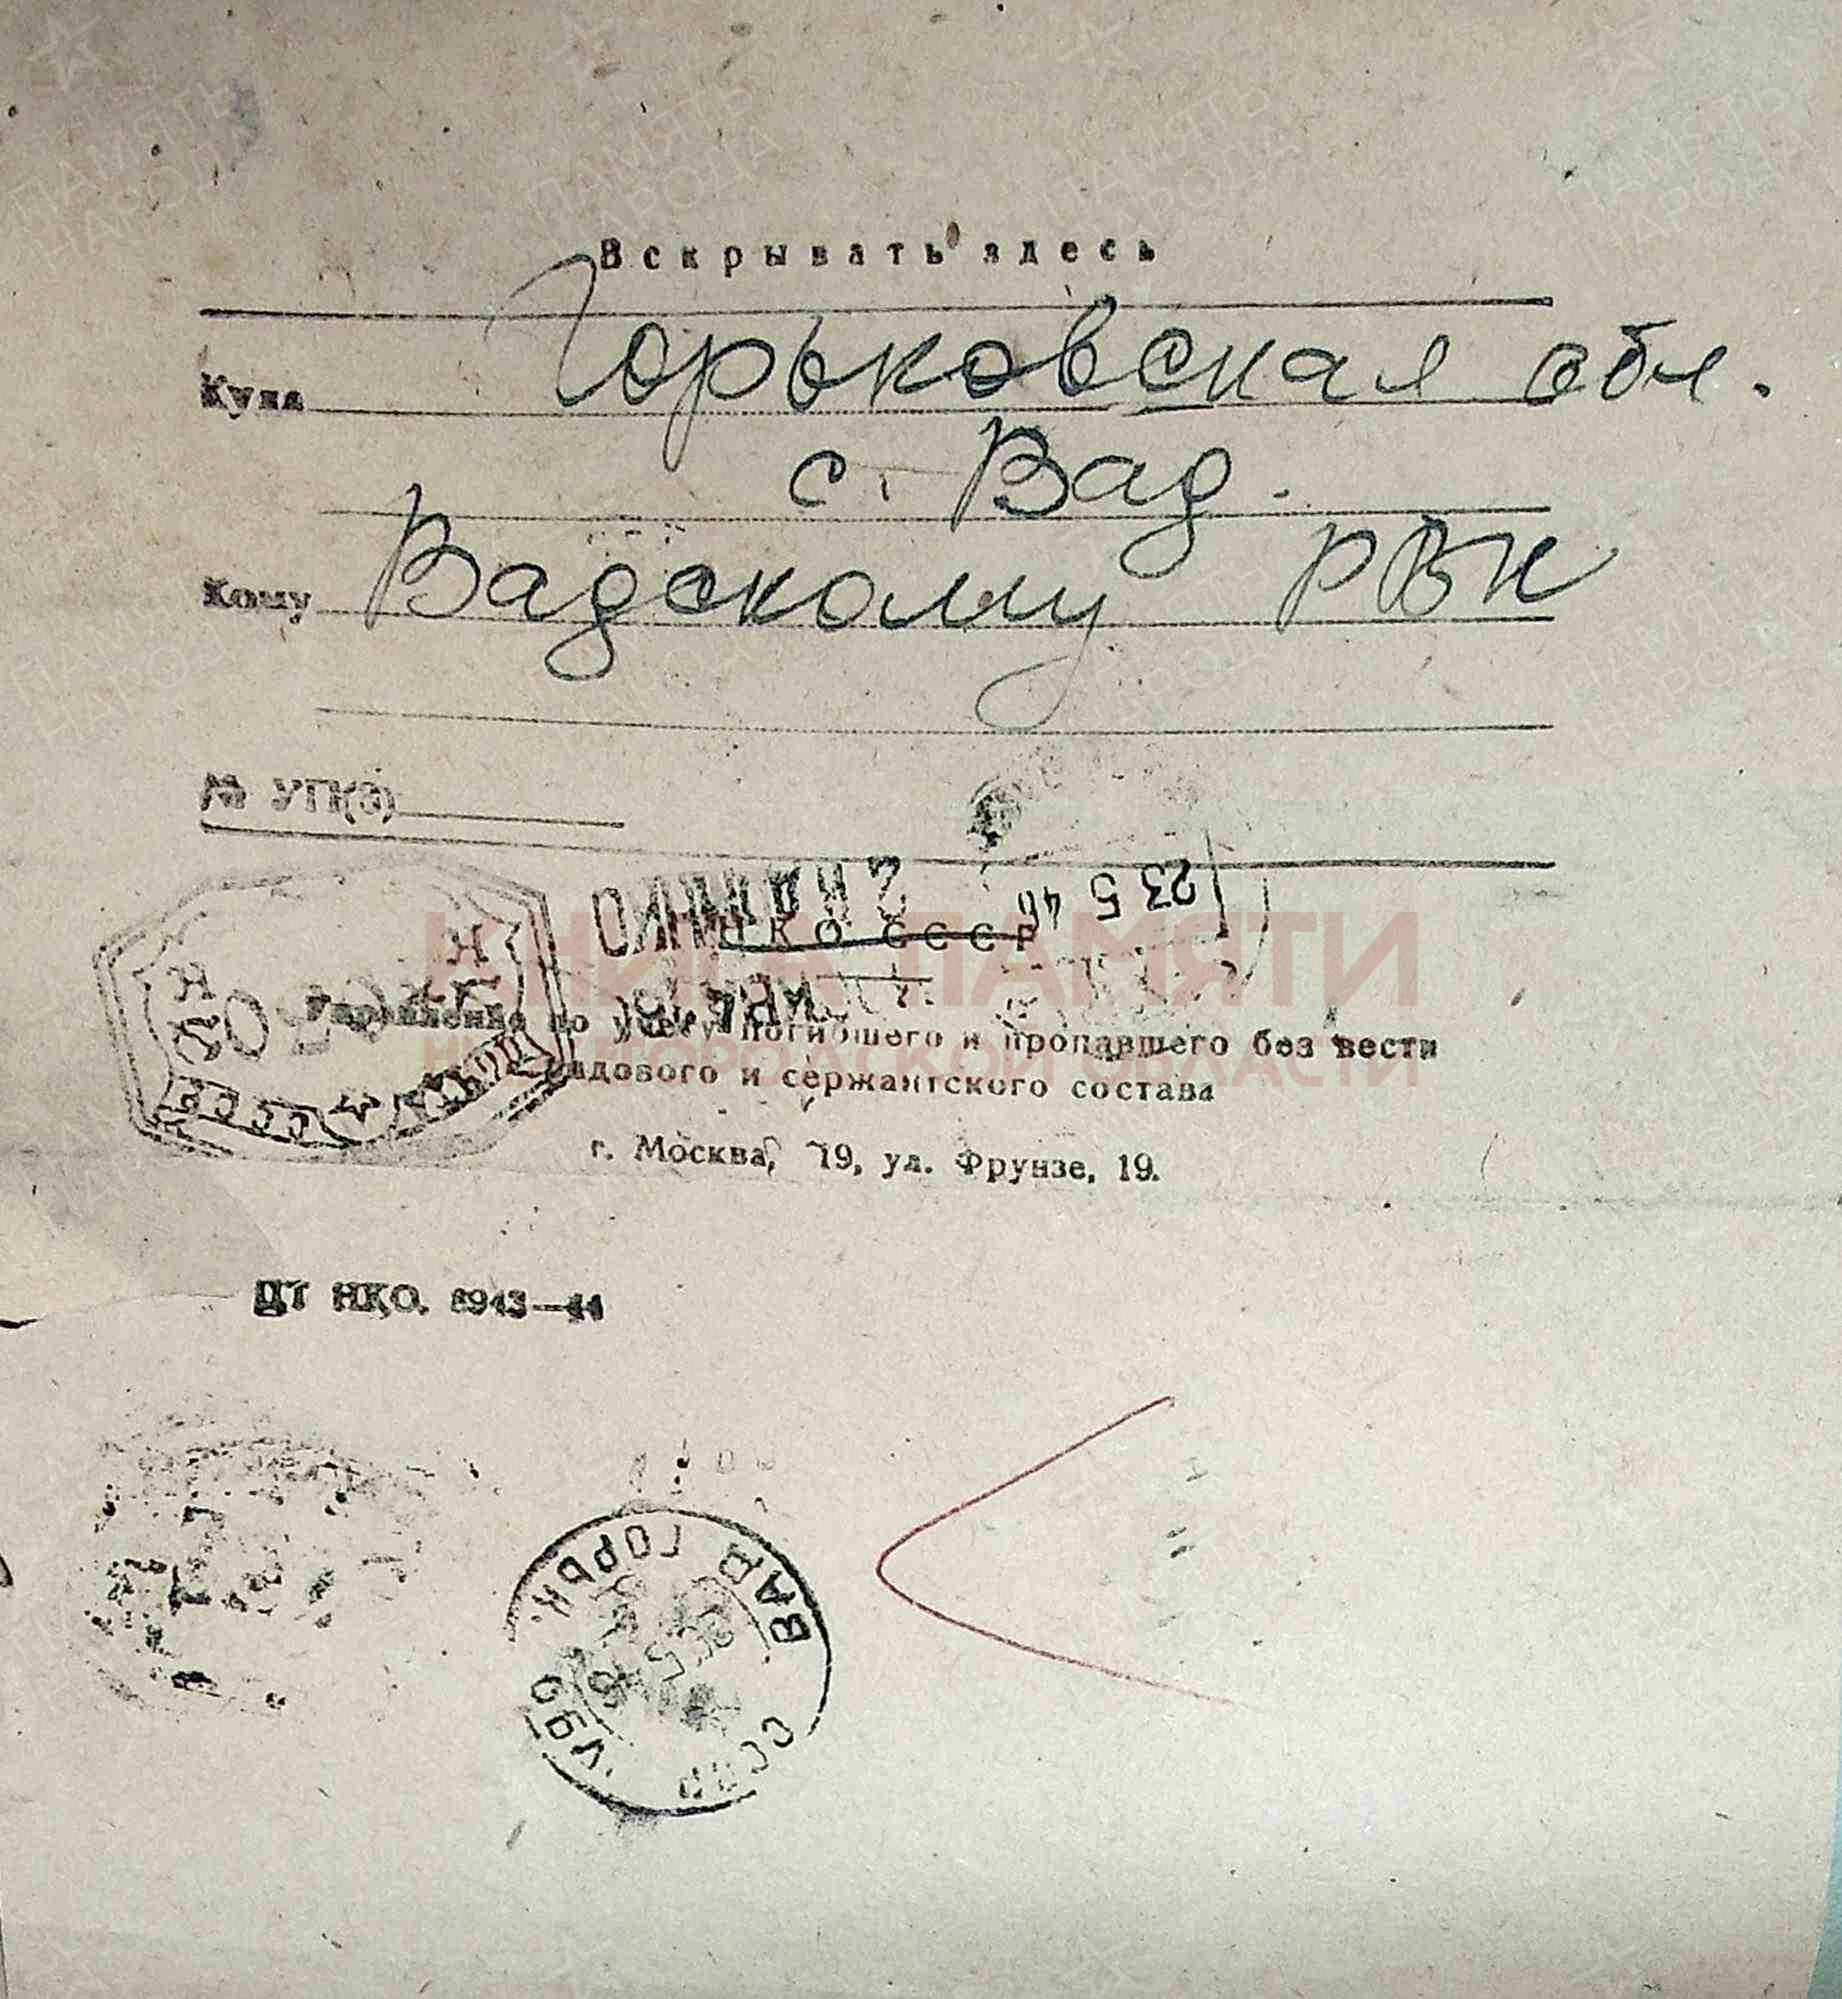 Вскрывать здесь
Куда Горьковская обл.
с. Вад.
Кому Вадскому РВК
№ УП(3)
23 5 46
НКО СССР
Управление по учету погибшего и пропавшего без вести
рядового и сержантского состава
г. Москва, 19, ул. Фрунзе, 19.
ЦТ НКО.
ВАД ГОРЬК.
СССР
КНИГА ПАМЯТИ
НИЖЕГОРОДСКОЙ ОБЛАСТИ
ПАМЯТЬ
НАРОДА